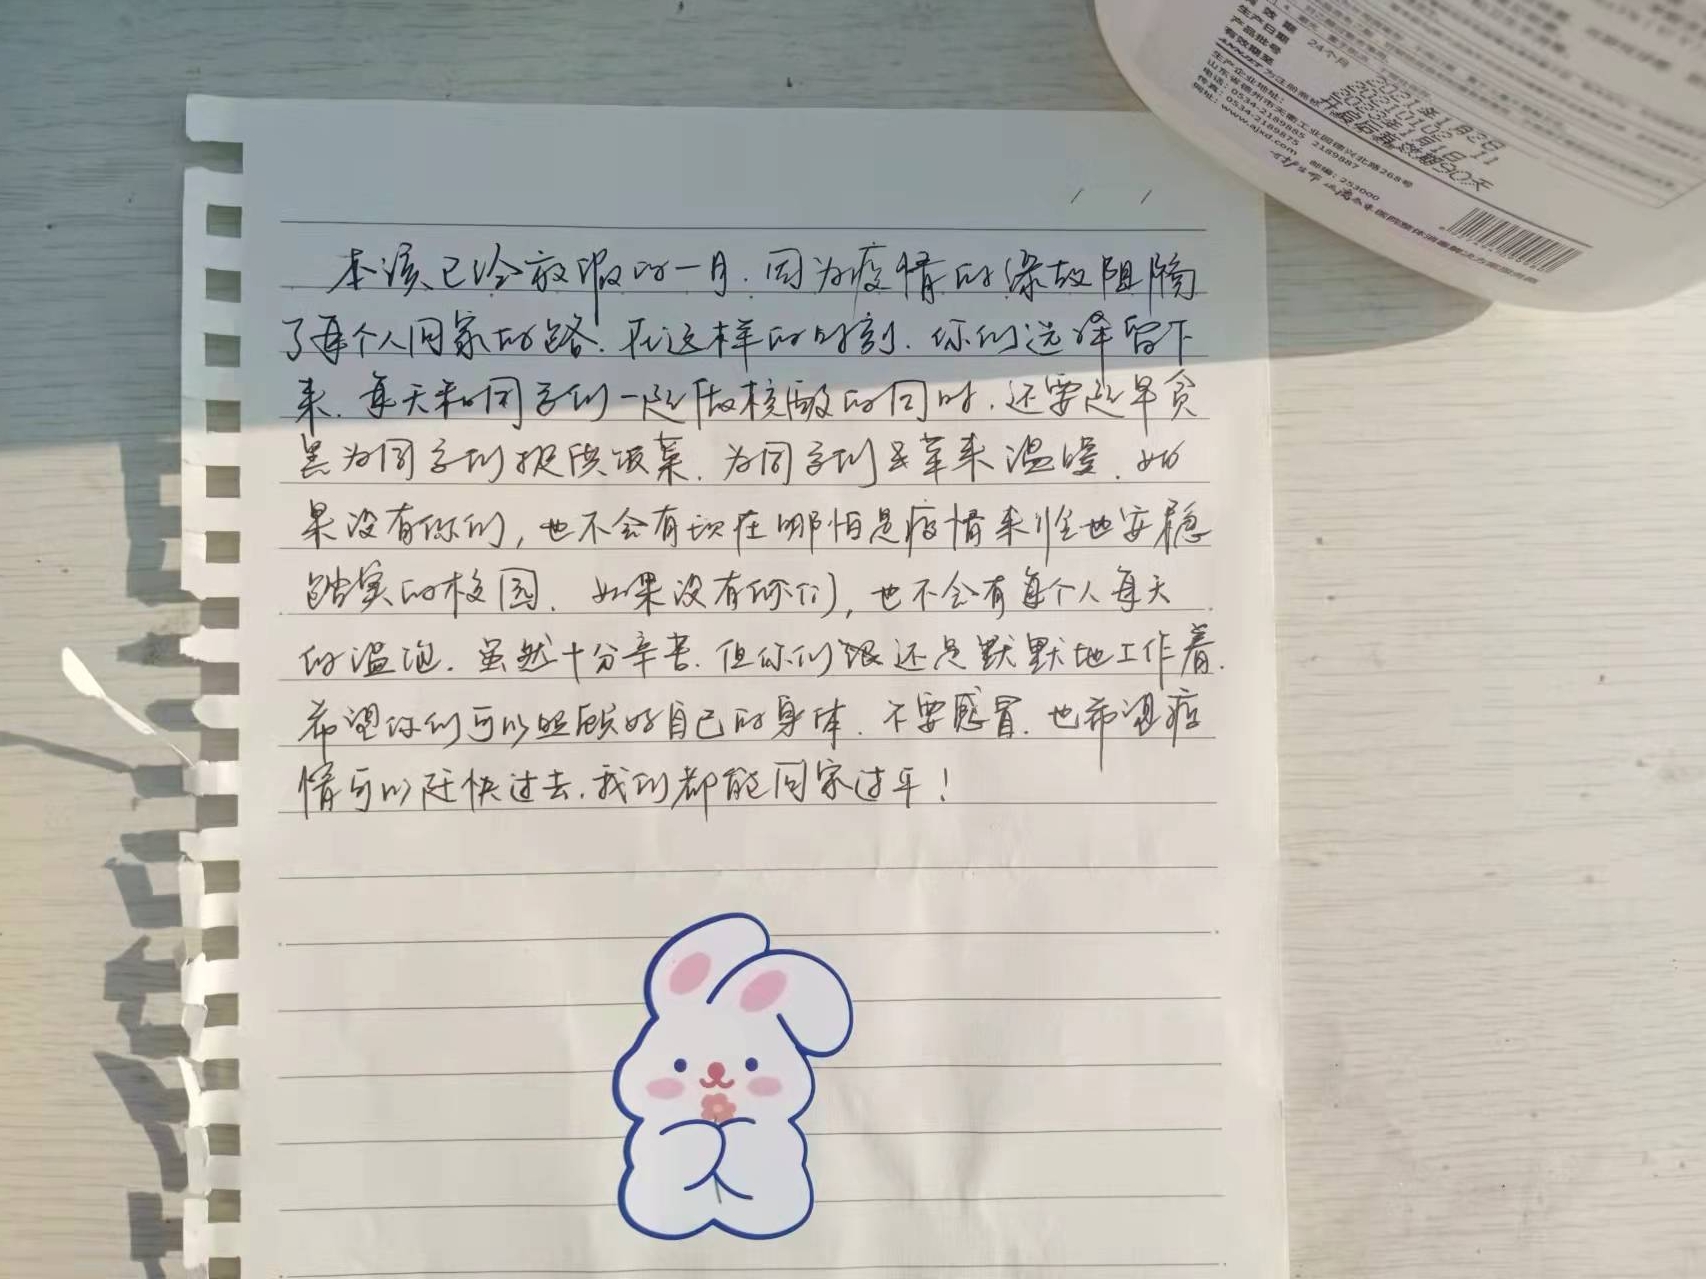 有效期 24个月
生产日期 2021年1月2日
产品批号
有效期至
开食后有效期90天
生产企业地址：
山东省德州市天衢工业园德兴北路268号
电话：0534-2189885 2189887 邮编：253000
传真：0534-2189875
网址：www.ajxd.com
本该已经放假的一月.因为疫情的缘故阻隔
了每个人回家的路.在这样的时刻.你们选择留下
来.每天和同学们一起做核酸的同时.还要起早贪
黑为同学们提供饭菜.为同学们带来温暖.如
果没有你们,也不会有现在哪怕是疫情来临也安稳
踏实的校园.如果没有你们,也不会有每个人每天
的温饱.虽然十分辛苦.但你们还是默默地工作着.
希望你们可以照顾好自己的身体.不要感冒.也希望疫
情可以赶快过去.我们都能回家过年!